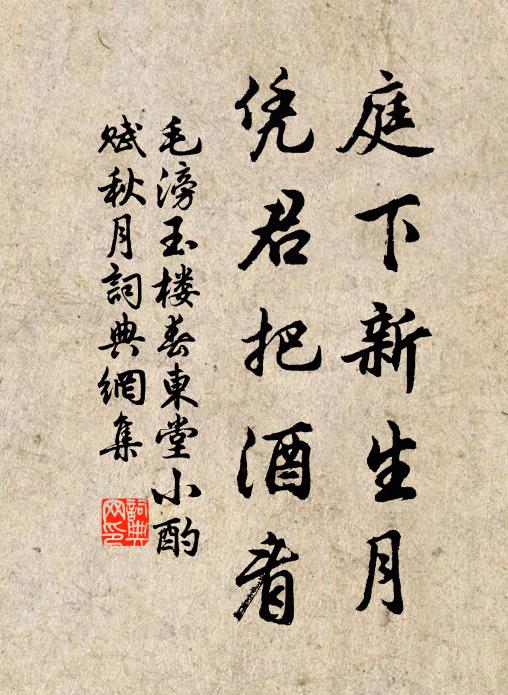 庭下新生月
凭君把酒看
毛滂玉楼春東堂小酌
賦秋月詞典網集
詞典
网印